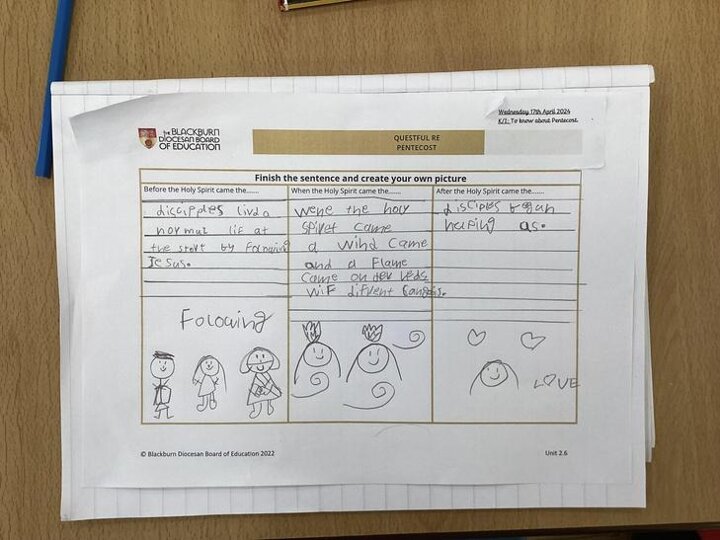 Wednesday 17th April 2024
K/I: To know about Pentecost.
THE BLACKBURN
DIOCESAN BOARD
OF EDUCATION
QUESTFUL RE
PENTECOST
Finish the sentence and create your own picture
Before the Holy Spirit came the.......
discipples livd a
normal lif at
the start by
Jesus.
Folowing
When the Holy Spirit came the.......
wene the holy
spiret came
a wind came
and a flame
came on der heds
wif difrent
After the Holy Spirit came the.......
disciples began
helping as.
LOVE
© Blackburn Diocesan Board of Education 2022
Unit 2.6